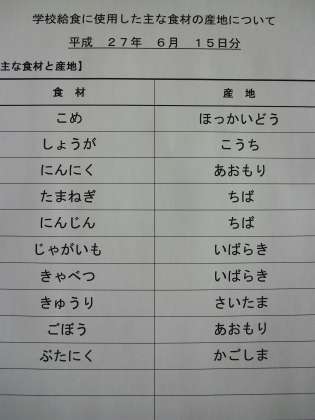 学校給食に使用した主な食材の産地について
平成 27年 6月 15日分
主な食材と産地】
食 材 産 地
こめ ほっかいどう
しょうが こうち
にんにく あおもり
たまねぎ ちば
にんじん ちば
じゃがいも いばらき
きゃべつ いばらき
きゅうり さいたま
ごぼう あおもり
ぶたにく かごしま